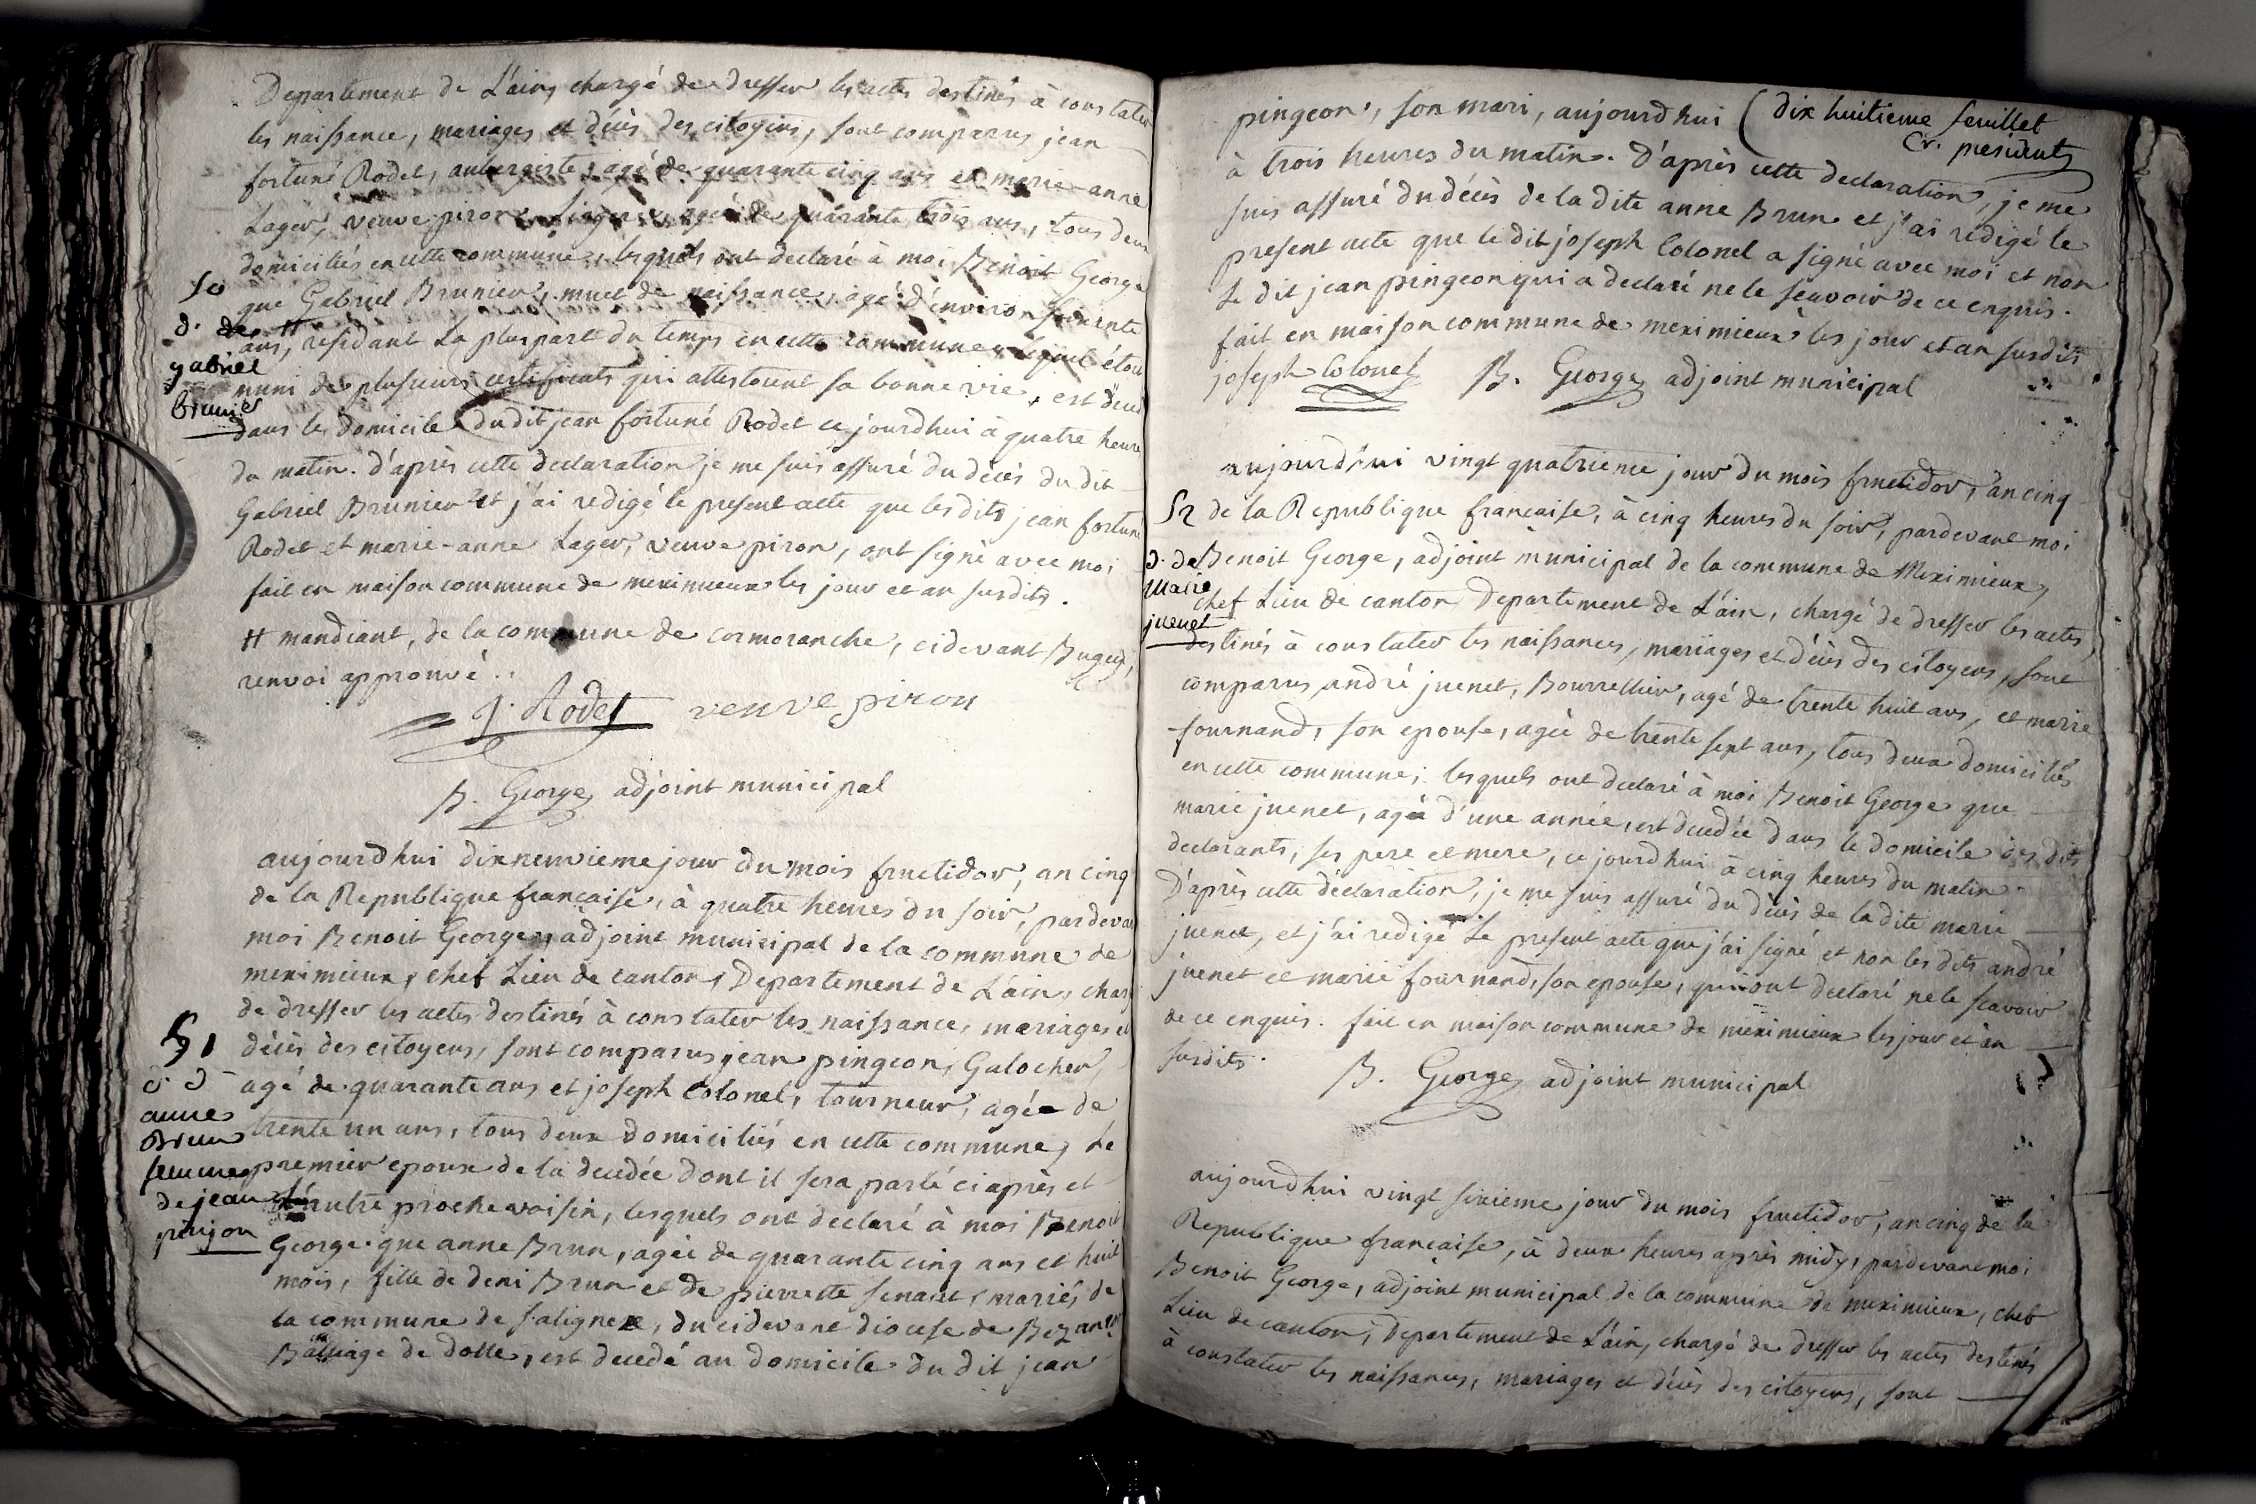 Departement de L'ain, chargé de dresser les actes destinés à constater
les naissance, mariages et décès des citoyens, sont comparus jean
fortuné Rodet, aubergiste, agé de quarante cinq ans et marie-anne
Lager, veuve piron, agée de quarante trois ans, tous deux
domiciliés en cette commune, lesquels ont declaré à moi Benoit George
que Gabriel Brunier, muet de naissance, agé d'environ
ans, residant la pluspart du temps en cette commune, lequel étoit
muni de plusieurs certificats qui attestoient sa bonne vie, est décédé
dans le domicile du dit jean fortuné Rodet ce jourd'hui à quatre heure
du matin. d'après cette declaration je me suis assuré du décès du dit
Gabriel Brunier et j'ai redigé le present acte que les dits jean fortuné
Rodet et marie-anne Lager, veuve piron, ont signé avec moi
fait en maison commune de meximieux les jour et an susdits.
H mandiant, de la commune de cormoranche, cidevant Bugey,
renvoi approuvé.
50
d. de
gabriel
brunier
J. Rodet veuve piron
B. George adjoint municipal
aujourdhui dixneuvieme jour du mois fructidor, an cinq
de la Republique francaise, à quatre heures du soir, pardevant
moi Benoit George, adjoint municipal de la commune de
meximieux, chef Lieu de canton, Departement de L'ain, chargé
de dresser les actes destinés à constater les naissance, mariages et
décès des citoyens, sont comparus jean pingeon, Galocher,
agé de quarante ans et joseph Colonel, tourneur, agée de
trente un ans, tous deux domiciliés en cette commune, Le
premier epoux de la decedée dont il sera parlé ci après et
L'autre proche voisin, lesquels ont declaré à moi Benoit
George que anne Brun, agée de quarante cinq ans et huit
mois, fille de deni Brun et de pierrette senaut, mariés de
la commune de saligney, du cidevant diocese de Bezancon
Balliage de dolle, est decedé au domicile du dit jean
51
d. d
anne
Brun
femme
de jean
pinjon
pingeon, son mari, aujourdhui (dix huitieme feuillet
Cr. president
à trois heures du matin. D'après cette declaration, je me
suis assuré du décès de la dite anne Brun et j'ai redigé le
present acte que le dit joseph Colonel a signé avec moi et non
Le dit jean pingeon qui a declaré ne le scavoir de ce enquis.
fait en maison commune de meximieux les jour et an susdits
joseph Colonel B. George adjoint municipal
aujourd'hui vingt quatrieme jour du mois fructidor, an cinq
de la Republique francaise, à cinq heures du soir, pardevant moi
Benoit George, adjoint municipal de la commune de Meximieux,
chef Lieu de canton Departement de L'ain, chargé de dresser les actes
destinés à constater les naissances, mariages et décès des citoyens, sont
comparus andré juenet, Bourrellier, agé de trente huit ans, et marie
fournand, son epouse, agée de trente sept ans, tous deux domiciliés
en cette commune; lesquels ont declaré à moi Benoit George que
marie juenet, agée d'une année, est decedée dans le domicile des dits
declarants, ses pere et mere, ce jourd'hui à cinq heures du matin.
D'après cette déclaration, je me suis assuré du décès de la dite marie
juenet, et j'ai redigé Le present acte que j'ai signé et non les dits andré
juenet et marie fournand, son epouse, qui ont declaré ne le scavoir
de ce enquis. fait en maison commune de meximieux les jour et an
susdits.
52
d. de
Marie
juenet
B. George adjoint municipal
aujourd'hui vingt sixieme jour du mois fructidor, an cinq de la
Republique francaise, à deux heures après midy, pardevant moi
Benoit George, adjoint municipal de la commune de meximieux, chef
Lieu de canton, departement de L'ain, chargé de dresser les actes destinés
à constater les naissances, mariages et décès des citoyens, sont